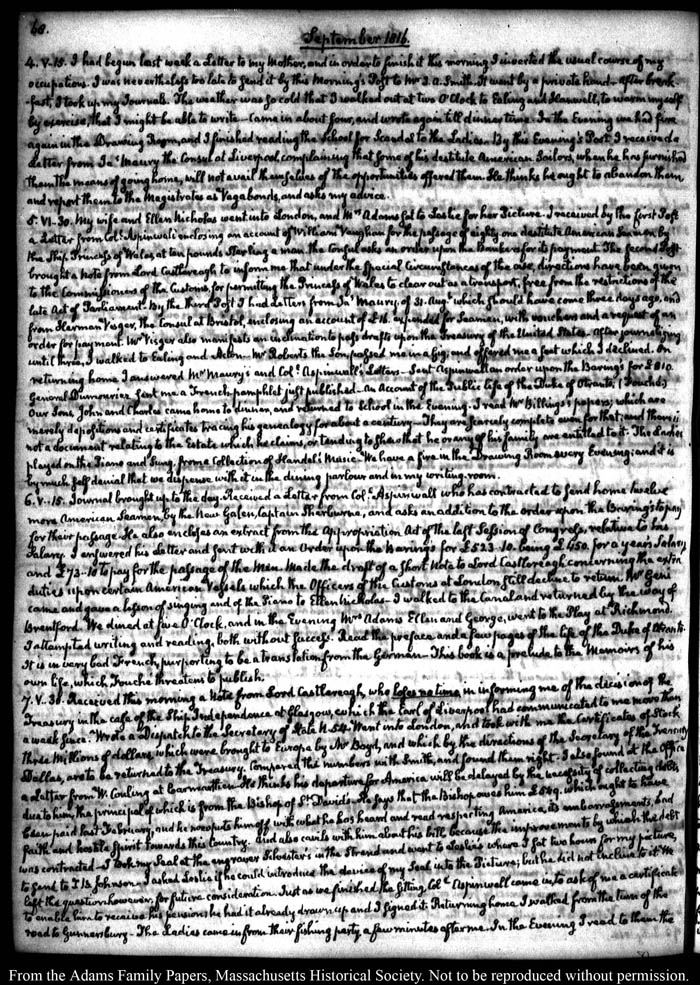 68.
September 1816.
4. V-15. I had begun last week a Letter to my Mother, and in order to finish it this morning I inverted the usual course of my
occupations. I was nevertheless too late to send it by this Morning's Post to Mr J. A. Smith. It went by a private hand - After break-
-fast, I took up my Journals. The weather was so cold that I walked out at two O'Clock to Ealing and Hanwell, to warm myself
by exercise, that I might be able to write - Came in about four, and wrote again till dinner time. In the Evening we had fire
again in the Drawing Room, and I finished reading the School for Scandal to the Ladies. By this Evening's Post I received a
Letter from Ja.s Maury the Consul at Liverpool complaining that some of his destitute American Sailors, when he has furnished
them the means of going home, will not avail themselves of the opportunities offered them. He thinks he ought to abandon them
and report them to the Magistrates as Vagabonds, and asks my advice.
5. VI-30. My wife and Ellen Nicholas went into London, and Mrs Adams sat to Leslie for her Picture. I received by the first Post
a Letter from Col.l Aspinwall enclosing an account of William Vaughan for the passage of eighty one destitute American Seamen by
the Ship Princess of Wales, at ten pounds Sterling a man. The Consul asks an order upon the Bankers for its payment. The second Post
brought a Note from Lord Castlereagh to inform me that under the special circumstances of the case, directions have been given
to the Commissioners of the Customs, for permitting the Princess of Wales to clear out as a transport, free from the restrictions of the
late Act of Parliament. By the third Post I had Letters from Ja.s Maury, of 31. Aug.t which should have come three days ago, and
from Harman Visger, the Consul at Bristol, enclosing an account of £16. expended for Seamen, with vouchers and a request of an
order for payment. Mr Visger also manifests an inclination to pass drafts upon the Treasury of the United States. After journalizing
until three, I walked to Ealing and Acton. Mr Roberts the Son, passed me in a gig, and offered me a seat which I declined. On
returning home I answered Mr Maury's and Col.l Aspinwall's Letters - Sent Aspinwall an order upon the Baring's for £810.
General Dumouriez sent me a French pamphlet just published - An Account of the Public life of the Duke of Otranto, (Fouché)
Our Sons, John and Charles came home to dinner, and returned to School in the Evening. I read Mr Billings's papers; which are
merely depositions and certificates tracing his genealogy for about a century - They are scarcely complete even for that; and there is
not a document relating to the Estate which he claims, or tending to shew that he or any of his family are entitled to it. The Ladies
played on the Piano and Sung, from a Collection of Handel's Music - We have a fire in the Drawing Room every Evening; and it is
by much self denial that we dispense with it in the dining parlour and in my writing-room.
6. V-15. Journal brought up to the day. Received a Letter from Col.l Aspinwall who has contracted to send home twelve
more American Seamen, by the New Galen, Captain Sherburne, and asks an addition to the order upon the Barings to pay
for their passage. He also encloses an extract from the Appropriation Act of the last Session of Congress, relative to his
Salary. I answered his Letter and sent with it an Order upon the Barings for £523-10. being £450. for a year's Salary
and £73-10 to pay for the passage of the Men. Made the draft of a short Note to Lord Castlereagh concerning the extra
duties upon certain American Vessels which the Officers of the Customs at London, still decline to return. Mr Geni
came and gave a lesson of singing and of the Piano to Ellen Nicholas - I walked to the Canal and returned by the way of
Brentford. We dined at five O'Clock, and in the Evening Mrs Adams Ellen and George, went to the Play at Richmond.
I attempted writing and reading, both without success. Read the preface and a few pages of the life of the Duke of Otranto.
It is in very bad French, purporting to be a translation from the German - This book is a prelude to the Memoirs of his
own life, which Fouché threatens to publish.
7. V-30. Received this morning a Note from Lord Castlereagh, who loses no time in informing me of the decision of the
Treasury in the case of the Ship Independence at Glasgow, which the Earl of Liverpool had communicated to me more than
a week since. Wrote a Dispatch to the Secretary of State N. 54. Went into London, and took with me the Certificates of Stock
three Millions of dollars, which were brought to Europe by Mr Boyd, and which by the directions of the Secretary of the Treasury
Dallas, are to be returned to the Treasury. Compared the numbers with Smith, and found them right - I also found at the Office
a Letter from W. Couling at Carmarthen. He thinks his departure for America will be delayed by the necessity of collecting debts
due to him, the principal of which is from the Bishop of St Davids. He says that the Bishop owes him £549. which ought to have
been paid last February, and he now puts him off with what he has heard and read respecting America, its embarrassments, bad
faith and hostile Spirit towards this Country. And also cavils with him about his bill because the improvements by which the debt
was contracted - I took my Seal at the engraver Silvester's in the Strand and went to Leslie's where I sat two hours for my picture,
to send to J. B. Johnson - I asked Leslie if he could introduce the device of my Seal into the Picture; but he did not incline to it. We
left the question however, for future consideration. Just as we finished the sitting, Col.l Aspinwall came in to ask of me a certificate
to enable him to receive his pension; he had it already drawn up and I signed it. Returning home I walked from the turn of the
road to Gunnersbury - The Ladies came in from their fishing party a few minutes after me. In the Evening I read to them the
From the Adams Family Papers, Massachusetts Historical Society. Not to be reproduced without permission.